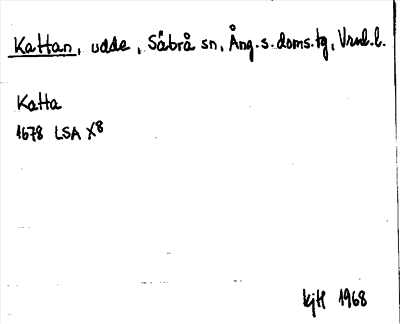 Kattan, udde, Säbrå sn, Ång.s.doms.tg, Vrnl.l.
Katta
1678 LSA X8
kjH 1968